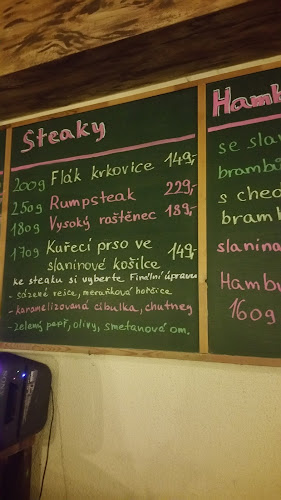 Steaky
200g Flák krkovice 149,-
250g Rumpsteak 229,-
180g Vysoký roštěnec 189,-
170g Kuřecí prso ve
slaninové košilce 149,-
ke steaku si vyberte Finální úpravu
- sázené vejce, meraňková hořčice
- karamelizovaná cibulka, chutney
- zelený pepř, olivy, smetanová om.
Hamb
se slan
brambů
s ched
bramb
slanina
Hambu
160g